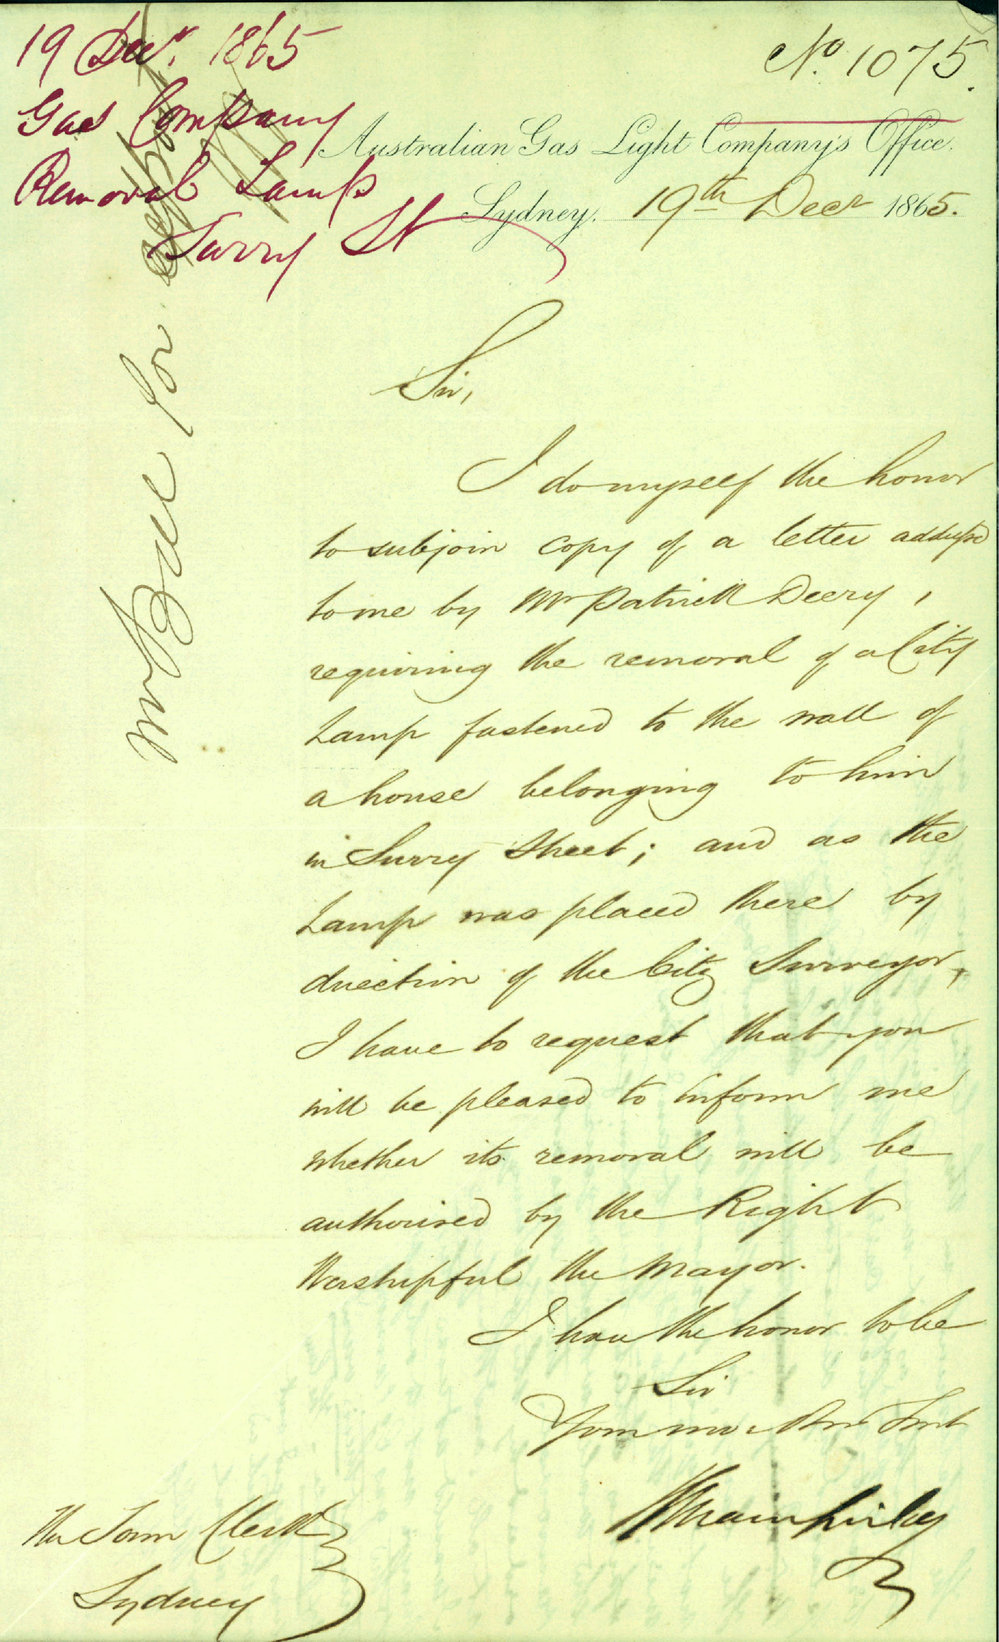 19 Decr. 1865
Gas Company
Removal Lamp
Surry St
No. 1075.
Australian Gas Light Company's Office.
Sydney. 19th Decr 1865.
Mr Bell for
Sir,
I do myself the honor
to subjoin copy of a letter addressed
to me by Mr Patrick Deery,
requiring the removal of a City
Lamp fastened to the wall of
a house belonging to him
in Surry Street; and as the
Lamp was placed there by
direction of the City Surveyor,
I have to request that you
will be pleased to inform me
whether its removal will be
authorised by the Right
Worshipful the Mayor.
I have the honor to be
Sir
Your mo. Obt Servt
The Town Clerk
Sydney